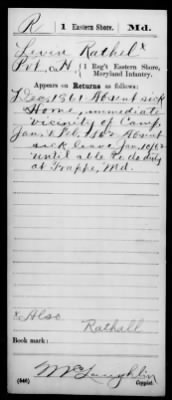 R | 1 Eastern Shore. | Md.
Levin Rathel x
Pvt., Co. H, 1 Reg't Eastern Shore, Maryland Infantry.
Appears on Returns as follows:
Dec. 1861 Absent sick
Home, immediate
vicinity of Camp,
Jan. & Feb. 1862 Absent
sick leave Jan. 10/62
until able to do duty
at Trappe, Md.
x Also
Rathall
Book mark:
McLaughlin
(546) Copyist.